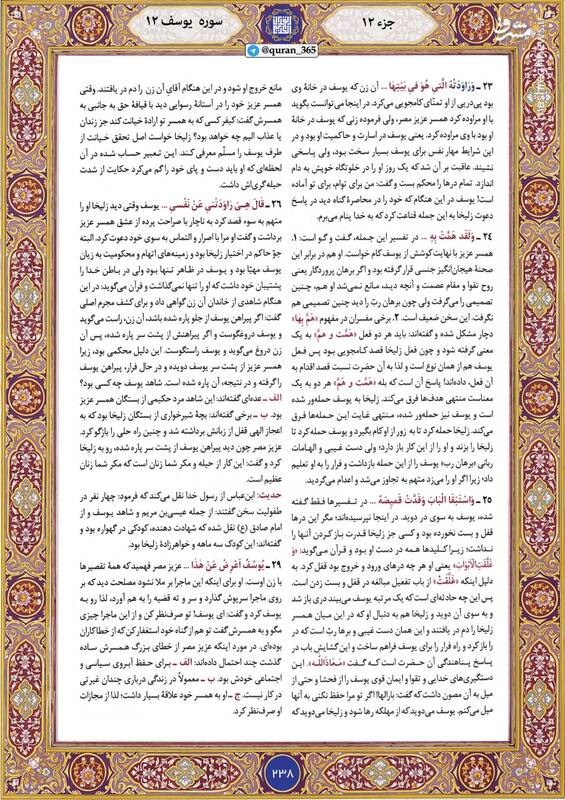 جزء ۱۲
سوره یوسف ۱۲
@quran_365
مشرق
۲۳ ـ وَرَاوَدَتْهُ الَّتِي هُوَ فِي بَيْتِهَا ... آن زن که یوسف در خانهٔ وی
بود پی‌درپی از او تمنّای کامجویی می‌کرد. در اینجا می‌توانست بگوید
با او مراوده کرد همسر عزیز مصر، ولی فرموده زنی که یوسف در خانهٔ
او بود با وی مراوده کرد. یعنی یوسف در اسارت و حاکمیت او بود و در
این شرایط مهار نفس برای یوسف بسیار سخت بود، ولی پاسخی
نشنید. عاقبت بر آن شد که یک روز او را در خلوتگاه خویش به دام
اندازد. تمام درها را محکم بست و گفت: من برای توام، برای تو آماده
است! یوسف در این هنگام که خود را در محاصرهٔ گناه دید در پاسخ
دعوت زلیخا به این جمله قناعت کرد که به خدا پناه می‌برم.
۲۴ ـ وَلَقَد هَمَّتْ بِهِ ... در تفسیر این جمله، گفت و گو است: ۱.
همسر عزیز با نهایت کوشش از یوسف کام خواست. او هم در برابر این
صحنهٔ هیجان‌انگیز جنسی قرار گرفته بود و اگر برهان پروردگار یعنی
روح تقوا و مقام عصمت و آنچه دید، مانع نمی‌شد او هم، چنین
تصمیمی را می‌گرفت ولی چون برهان ربّ را دید چنین تصمیمی هم
نگرفت. این سخن ضعیف است. ۲. برخی مفسران در مفهوم «هَمَّ بِهَا»
دچار مشکل شده و گفته‌اند: باید هر دو فعل «هَمَّت و هَمَّ» به یک
معنی گرفته شود و چون فعل زلیخا قصد کامجویی بود پس فعل
یوسف هم از همان نوع است و لذا به آن حضرت نسبت قصد اقدام به
آن فعل، داده‌اند! پاسخ آن است که بله «هَمَّت و هَمَّ» هر دو به یک
معناست منتهی هدف‌ها فرق می‌کند. زلیخا به یوسف حمله‌ور شده
است و یوسف نیز حمله‌ور شده، منتهی غایت این حمله‌ها فرق
می‌کند. زلیخا حمله کرد تا به زور از او کام بگیرد و یوسف حمله کرد تا
زلیخا را بزند و او را از این کار باز دارد؛ ولی دست غیبی و الهامات
ربانی «برهان رب» یوسف را از این حمله بازداشت و فرار را به او تعلیم
داد؛ زیرا اگر او را می‌زد متهم به تجاوز می‌شد و اعدام می‌گردید.
۲۵ ـ وَاسْتَبَقَا الْبَابَ وَقَدَّتْ قَمِيصَهُ ... در تفسیرها فقط گفته
شده، یوسف به سوی در دوید. در اینجا نپرسیده‌اند؛ مگر این درها
قفل و بست نخورده بود و کسی جز زلیخا قدرت باز کردن آنها را
نداشت؛ زیرا کلیدها همه در دست او بود و قرآن می‌گوید: «وَ
غَلَّقَتِ الْأَبْوَابَ» یعنی او هر چه درهای ورود و خروج بود قفل کرد. به
دلیل اینکه «غَلَّقَتْ» از باب تفعیل مبالغه در قفل و بست زدن است.
پس این چه حادثه‌ای است که یک مرتبه یوسف می‌بیند دری باز شد
و به سوی آن دوید و زلیخا هم به دنبال او که در این میان همسر
زلیخا را دم در یافتند و این همان دست غیبی و برهان ربّ است که در
را باز کرد و راه فرار را برای یوسف فراهم ساخت و این گشایش باب در
پاسخ پناهندگی آن حضرت است که گفت «مَعَاذَ اللَّه». این
دستگیری‌های خدایی و تقوا و ایمان قوی یوسف را از فحشا و حتی از
میل به آن مصون داشت که گفت: بارالها! اگر تو مرا حفظ نکنی به آنها
میل می‌کنم. یوسف می‌دوید که از مهلکه رها شود و زلیخا می‌دوید که
مانع خروج او شود و در این هنگام آقای آن زن را دم در یافتند. وقتی
همسر عزیز خود را در آستانهٔ رسوایی دید با قیافهٔ حق به جانبی به
همسرش گفت: کیفر کسی که به همسر تو ارادهٔ خیانت کند جز زندان
یا عذاب الیم چه خواهد بود؟ زلیخا خواست اصل تحقق خیانت از
طرف یوسف را مسلّم معرفی کند. این تعبیر حساب شده در آن
لحظه‌ای که او باید دست و پای خود را گم می‌کرد حکایت از شدت
حیله‌گری‌اش داشت.
۲۶ ـ قَالَ هِيَ رَاوَدَتْنِي عَنْ نَفْسِي ... یوسف وقتی دید زلیخا او را
متهم به سوء قصد کرد به ناچار با صراحت پرده از عشق همسر عزیز
برداشت و گفت او مرا با اصرار و التماس به سوی خود دعوت کرد. البته
جوّ حاکم در اختیار زلیخا بود و زمینه‌های اتهام و محکومیت به زیان
یوسف مهیّا بود و یوسف در ظاهر تنها بود ولی در باطن خدا را
پشتیبان خود داشت که او را تنها نمی‌گذاشت و قرآن می‌گوید: در این
هنگام شاهدی از خاندان آن زن گواهی داد و برای کشف مجرم اصلی
گفت: اگر پیراهن یوسف از جلو پاره شده باشد، آن زن، راست می‌گوید
و یوسف دروغگوست و اگر پیراهنش از پشت سر پاره شده، پس آن
زن دروغ می‌گوید و یوسف راستگوست. این دلیل محکمی بود، زیرا
همسر عزیز از پشت سر یوسف دویده و در حال فرار، پیراهن یوسف
را گرفته و در نتیجه، آن پاره شده است. شاهد یوسف چه کسی بود؟
الف ـ عده‌ای گفته‌اند: این شاهد مرد حکیمی از بستگان همسر عزیز
بود. ب ـ برخی گفته‌اند: بچهٔ شیرخواری از بستگان زلیخا بود که به
اعجاز الهی قفل از زبانش برداشته شد و چنین راه حلی را بازگو کرد.
عزیز مصر چون دید پیراهن یوسف از پشت سر پاره شده، رو به زلیخا
کرد و گفت: این کار از حیله و مکر شما زنان است که مکر شما زنان
عظیم است.
حدیث: ابن‌عباس از رسول خدا نقل می‌کند که فرمود: چهار نفر در
طفولیت سخن گفتند: از جمله عیسی‌بن مریم و شاهد یوسف و از
امام صادق (ع) نقل شده که شهادت دهنده، کودکی در گهواره بود و
گفته‌اند: این کودک سه ماهه و خواهرزادهٔ زلیخا بود.
۲۹ ـ يُوسُفُ أَعْرِضْ عَنْ هَذَا ... عزیز مصر فهمید که همهٔ تقصیرها
با زن اوست. او برای اینکه این ماجرا بر ملا نشود مصلحت دید که بر
روی ماجرا سرپوش گذارد و سر و ته قضیه را به هم آورد، لذا رو به
یوسف کرد و گفت: ای یوسف! تو صرف‌نظر کن و از این ماجرا چیزی
مگو و به همسرش گفت تو هم از گناه خود استغفار کن که از خطاکاران
بوده‌ای. در مورد اینکه عزیز مصر از خطای بزرگ همسرش ساده
گذشت چند احتمال داده‌اند: الف ـ برای حفظ آبروی سیاسی و
اجتماعی خودش بود. ب ـ معمولاً در زندگی درباری چندان غیرتی
در کار نیست. ج ـ او به همسر خود علاقهٔ بسیار داشت؛ لذا از مجازات
او صرف‌نظر کرد.
۲۳۸